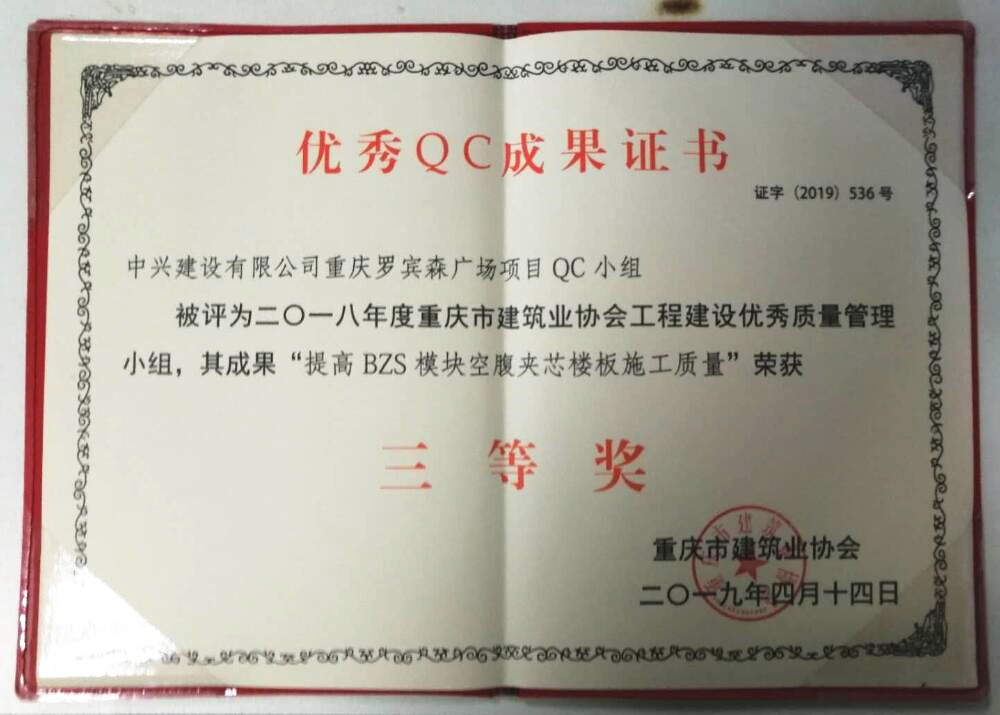 优秀QC成果证书
证字（2019）536号
中兴建设有限公司重庆罗宾森广场项目QC小组
被评为二〇一八年度重庆市建筑业协会工程建设优秀质量管理
小组，其成果“提高BZS模块空腹夹芯楼板施工质量”荣获
三等奖
重庆市建筑业协会
二〇一九年四月十四日